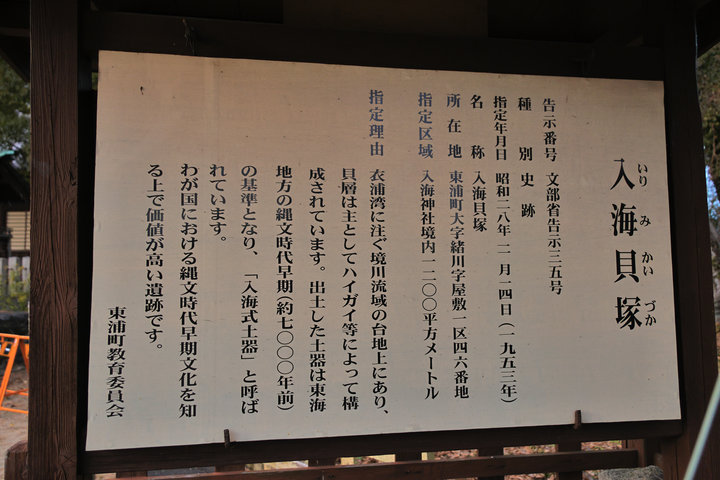 入海貝塚
いりみかいづか
告示番号 文部省告示三五号
種別 史跡
指定年月日 昭和二八年一一月一四日(一九五三年)
名称 入海貝塚
所在地 東浦町大字緒川字屋敷一区四六番地
指定区域 入海神社境内一二〇〇平方メートル
指定理由 衣浦湾に注ぐ境川流域の台地上にあり、
貝層は主としてハイガイ等によって構
成されています。出土した土器は東海
地方の縄文時代早期(約七〇〇〇年前)
の基準となり、「入海式土器」と呼ば
れています。
わが国における縄文時代早期文化を知
る上で価値が高い遺跡です。
東浦町教育委員会